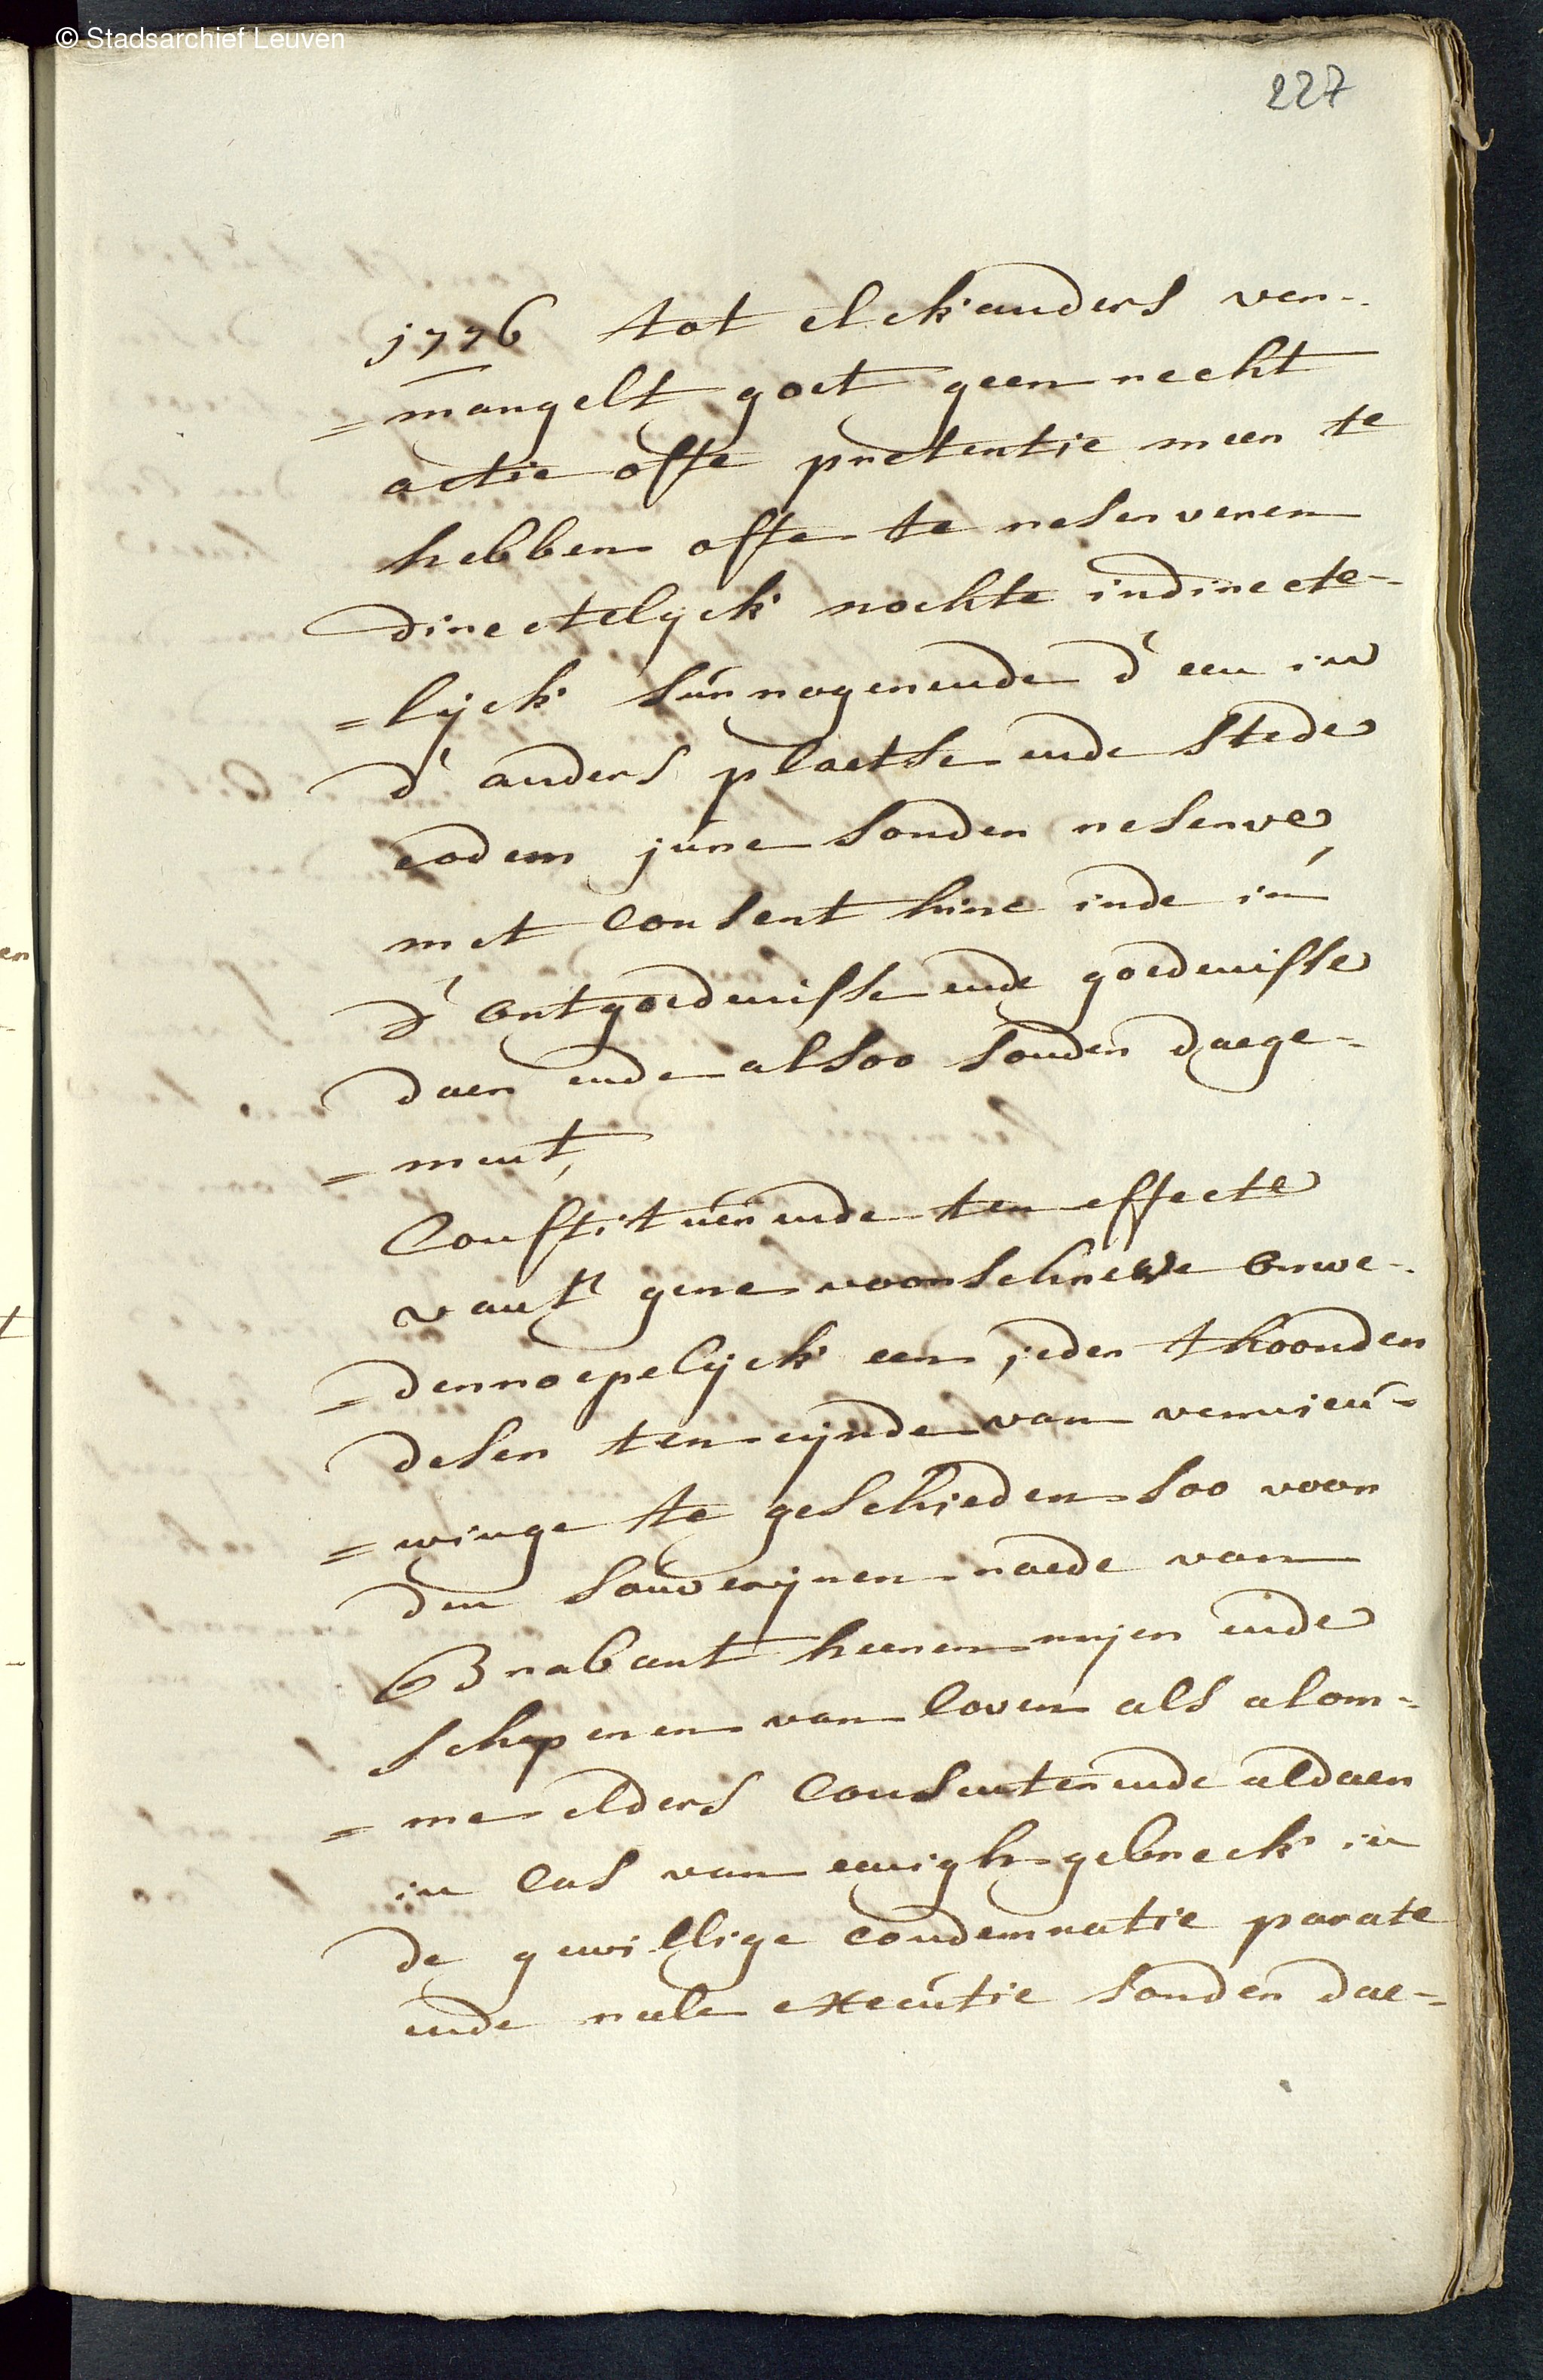 © Stadsarchief Leuven
227
1776 tot elckanders ver-
=mangelt goet geen recht
actie offe pretentie meer te
hebben offe te reserveren
directelyck nochte indirecte-
=lijck surrogerende d'een in
d'anders plaetse ende stede
eodem jure sonder reserve,
met consent hinc inde in
d'ontgoedenisse ende goedenisse
daer ende alsoo sonder daege-
=ment,
Constituerende ten effecte
van't gene voorschreve onwe-
=derroepelyck een jeder thoonder
deser ten eynde van vernieu-
=winge te geschieden soo voor
den souverynen raede van
Brabant heeren meyer ende
schepenen van loven als alom-
=me elders Consenterende aldaer
in cas van eenigh gebreck in
de gewillige condemnatie parate
ende reele executie sonder dae-